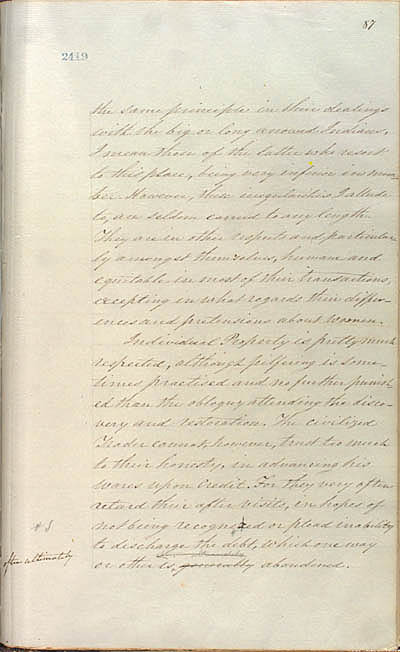 87
2449
the same principle in their dealings
with the big or long wound Indians,
I mean those of the latter who resort
to this place, being very inferior in num
ber. However, these irregularities I allude
to, are seldom carried to any length.
They are in other respects and particular
ly amongst themselves, humane and
equitable in most of their transactions,
excepting in what regards their differ
ences and pretensions about women.
Individual Property is pretty much
respected, although pilfering is some-
times practised and no further punish
ed than the obloquy attending the disco-
very and restoration. The civilized
Trader cannot, however, trust too much
to their honesty, in advancing his
wares upon Credit. For they very often
retard their after visits, in hopes of
not being recognized or plead inability
to discharge the debt, which one way
often ultimately
or other is, generally abandoned.